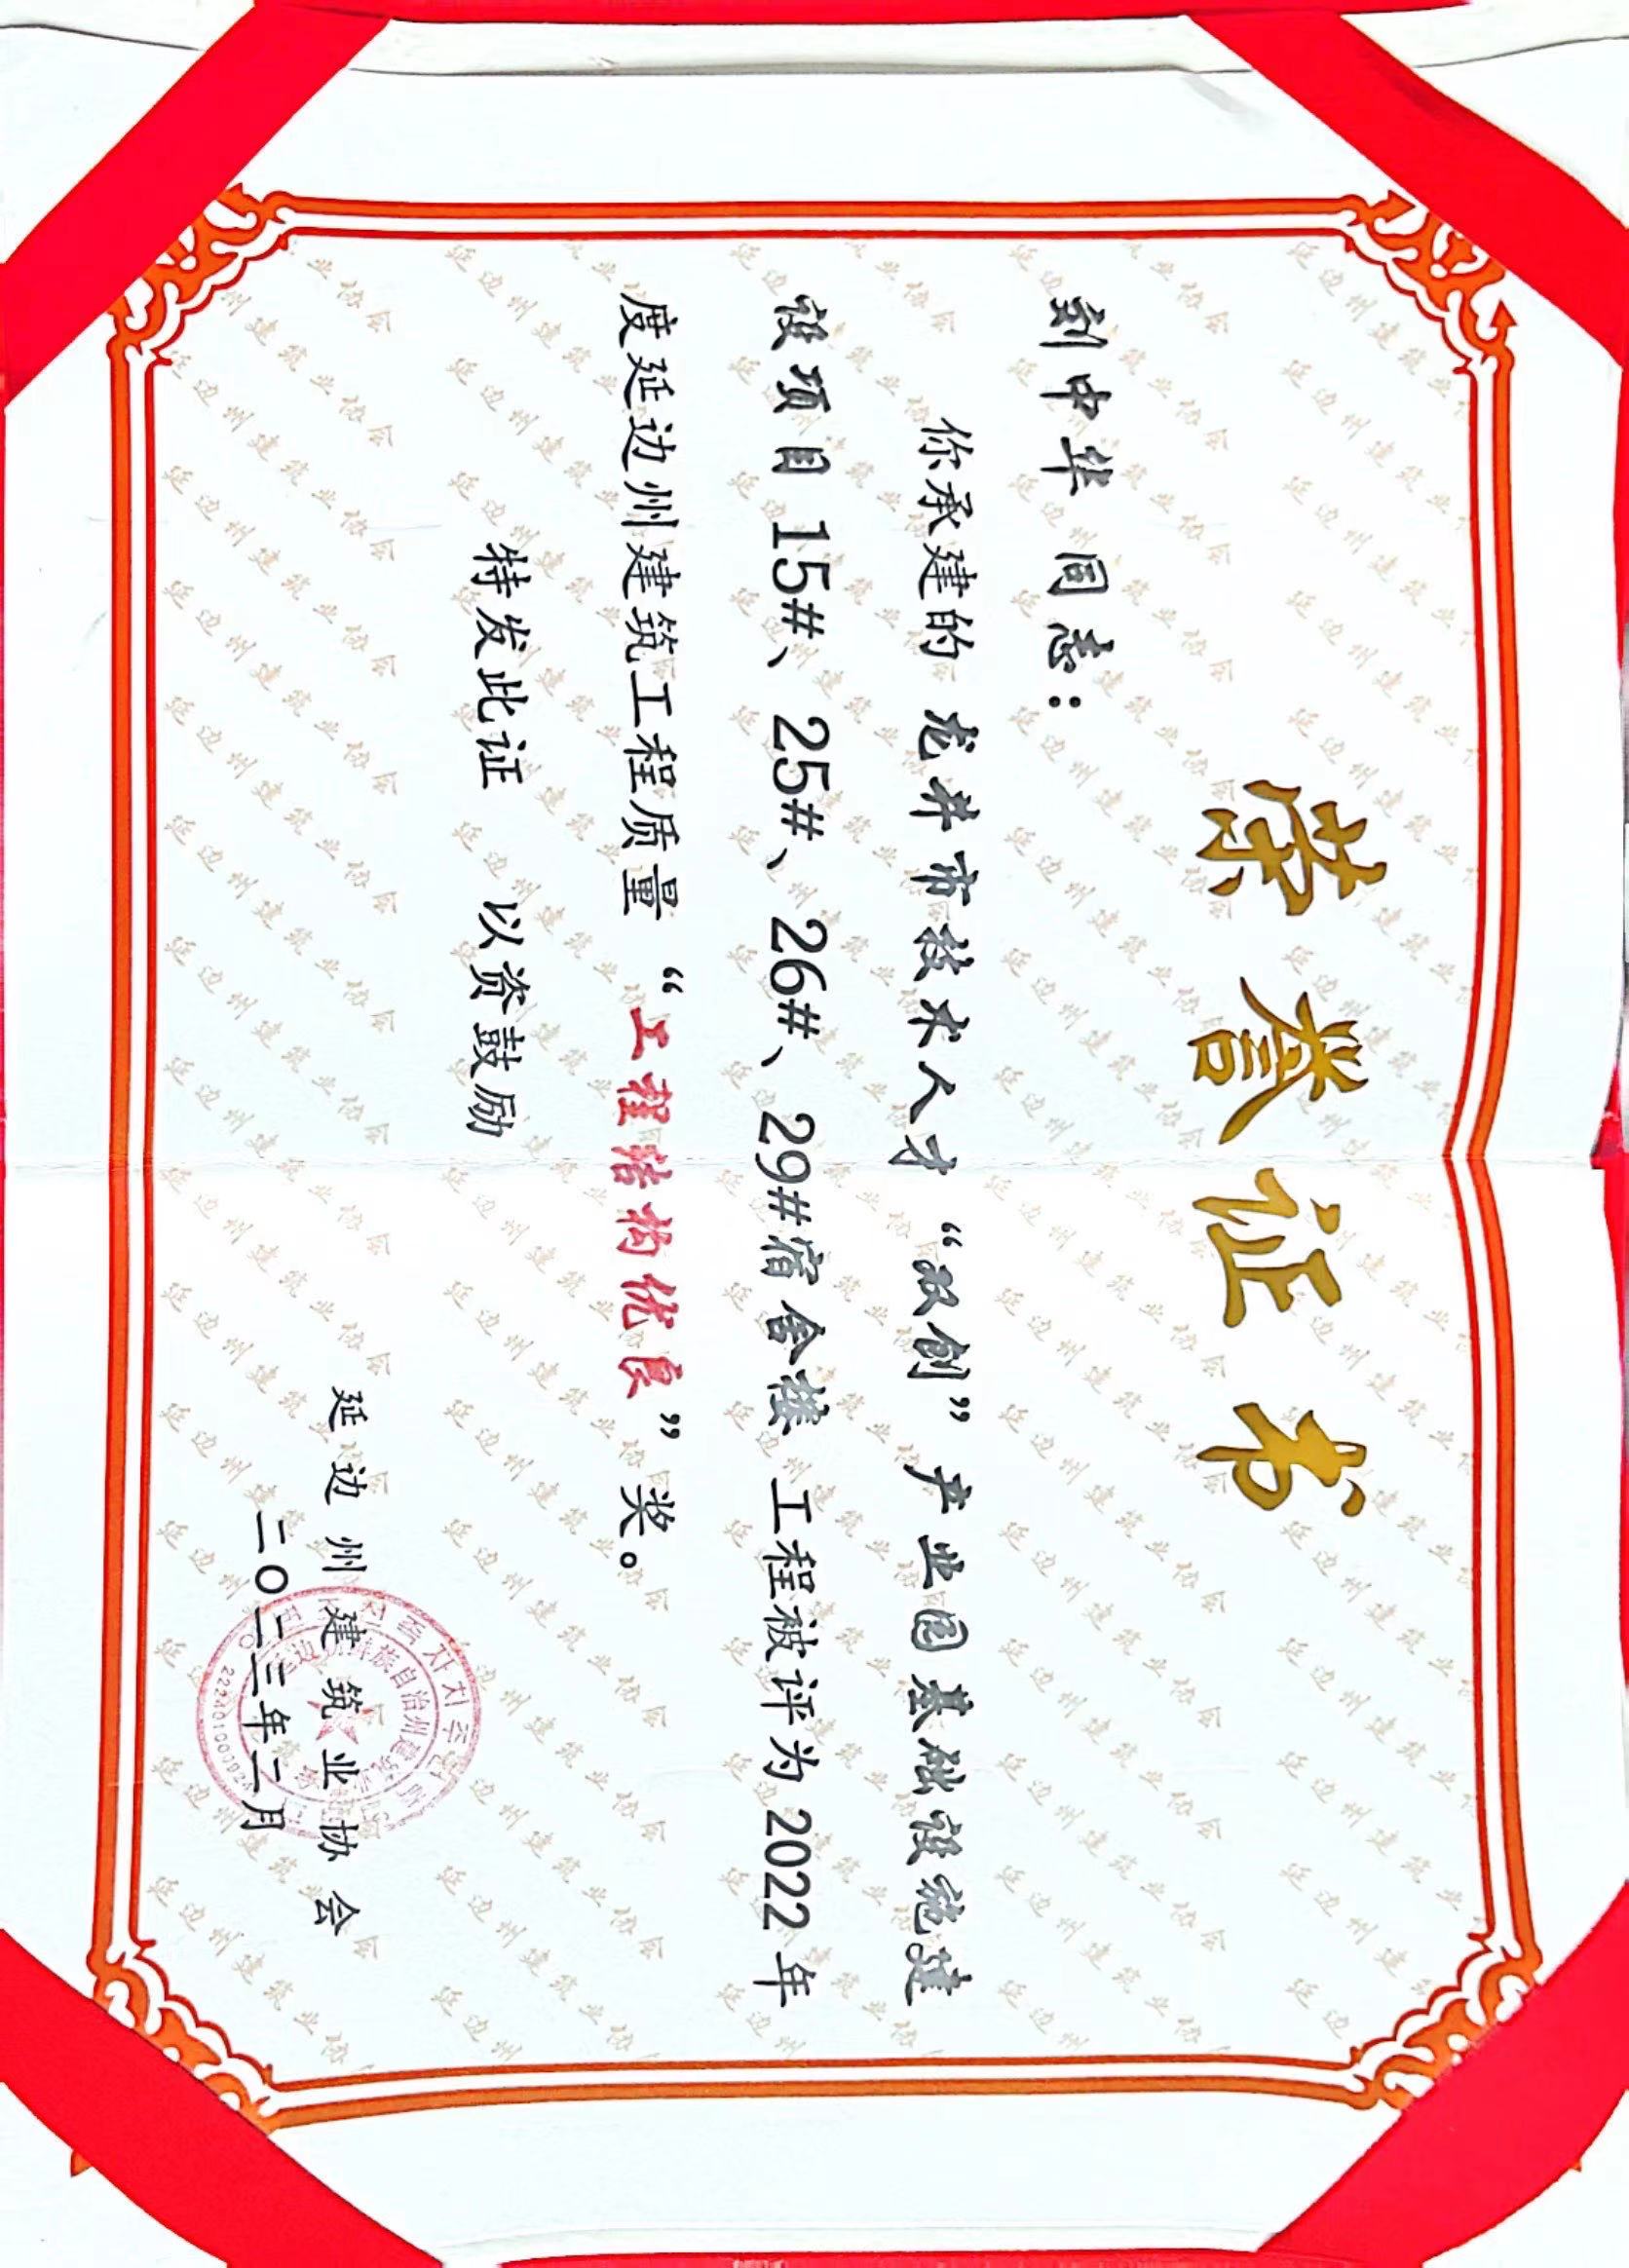 荣誉证书
刘中华 同志：
你承建的 龙井市技术人才“双创”产业园基础设施建
设项目 15#、25#、26#、29#宿舍楼 工程被评为 2022 年
度延边州建筑工程质量“工程结构优良”奖。
特发此证 以资鼓励
延边州建筑业协会
二〇二三年二月